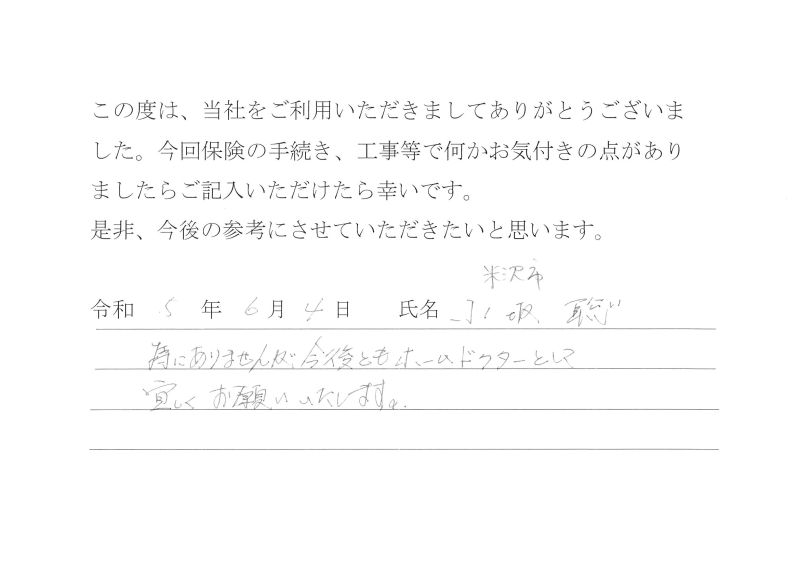 この度は、当社をご利用いただきましてありがとうございま
した。今回保険の手続き、工事等で何かお気付きの点があり
ましたらご記入いただけたら幸いです。
是非、今後の参考にさせていただきたいと思います。
米沢市
令和 5 年 6 月 4 日 氏名 小坂 聡
特にありませんが、今後ともホームドクターとして
宜しくお願いいたします。